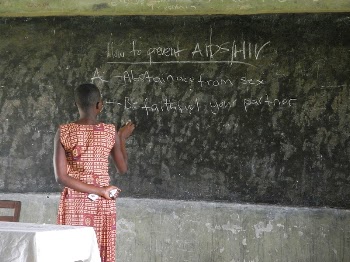 How to prevent AIDS/HIV
A - Abstaining from sex
- Be faithful your partner